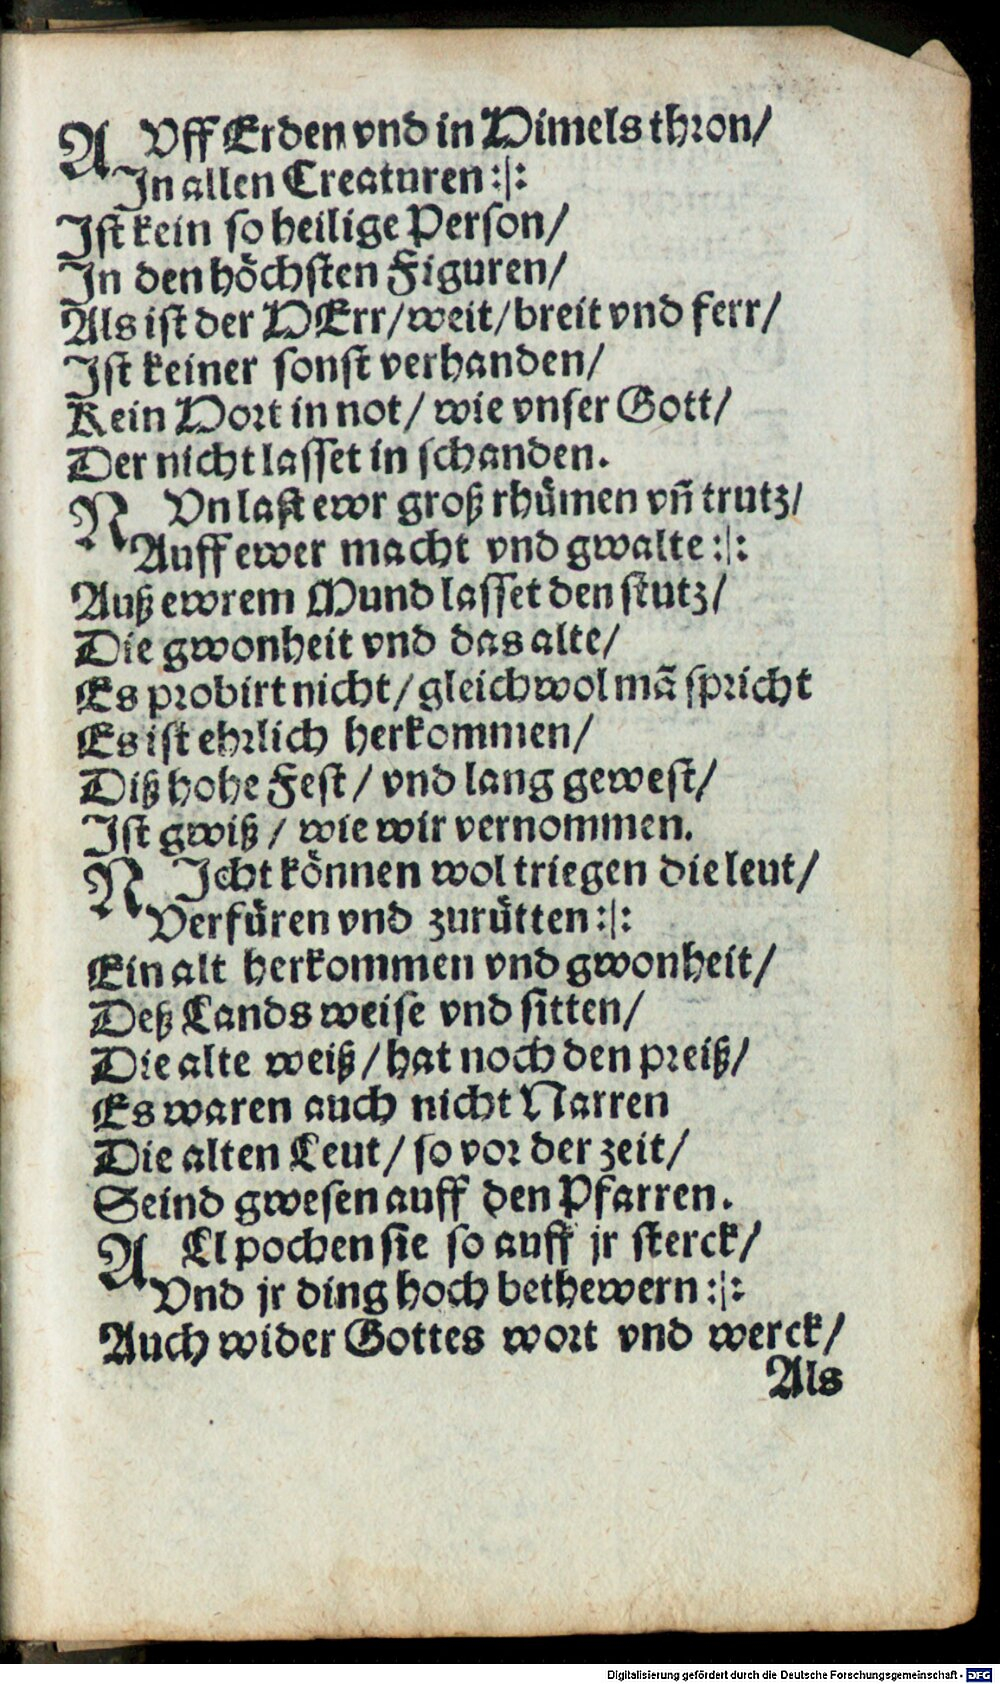 AVff Erden vnd in Himels thron/
In allen Creaturen :|:
Ist kein so heilige Person/
In den höchsten Figuren/
Als ist der HErr/weit/breit vnd ferr/
Ist keiner sonst verhanden/
Kein Hort in not/ wie vnser Gott/
Der nicht lasset in schanden.
NVn last ewr groß rhümen vñ trutz/
Auff ewer macht vnd gwalte :|:
Auß ewrem Mund lasset den stutz/
Die gwonheit vnd das alte/
Es probirt nicht/gleichwol mã spricht
Es ist ehrlich herkommen/
Diß hohe Fest/ vnd lang gewest/
Ist gwiß/ wie wir vernommen.
NIcht können wol triegen die leut/
Verfüren vnd zurütten :|:
Ein alt herkommen vnd gwonheit/
Deß Lands weise vnd sitten/
Die alte weiß/hat noch den preiß/
Es waren auch nicht Narren
Die alten Leut/ so vor der zeit/
Seind gwesen auff den Pfarren.
ALl pochen sie so auff jr sterck/
Vnd jr ding hoch bethewern :|:
Auch wider Gottes wort vnd werck/
Als
Digitalisierung gefördert durch die Deutsche Forschungsgemeinschaft - DFG